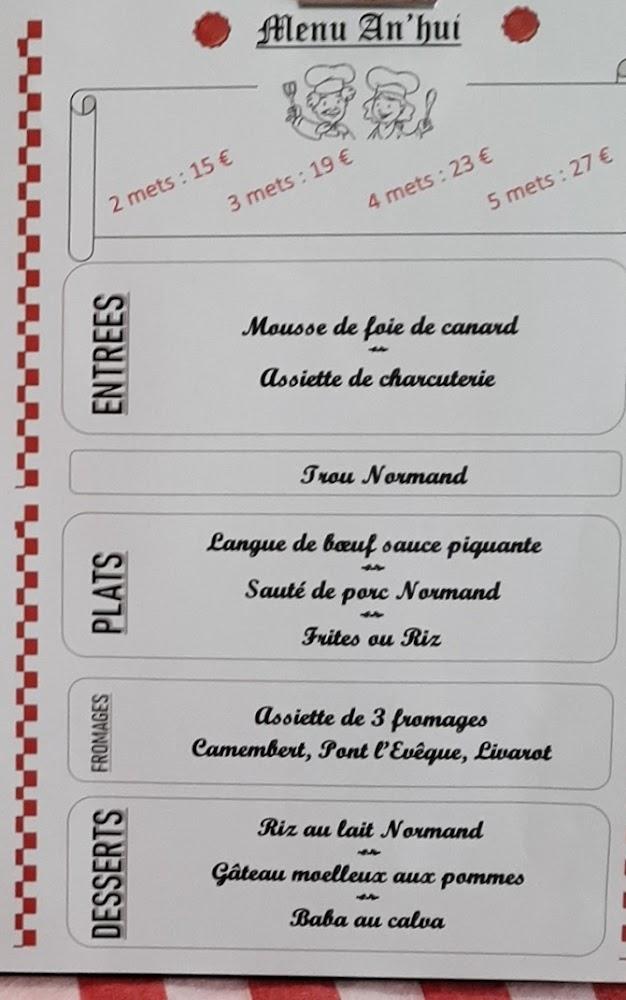 Menu An'hui
2 mets : 15 €
3 mets : 19 €
4 mets : 23 €
5 mets : 27 €
ENTREES
Mousse de foie de canard
Assiette de charcuterie
Trou Normand
PLATS
Langue de bœuf sauce piquante
Sauté de porc Normand
Frites ou Riz
FROMAGES
Assiette de 3 fromages
Camembert, Pont l'Evêque, Livarot
DESSERTS
Riz au lait Normand
Gâteau moelleux aux pommes
Baba au calva